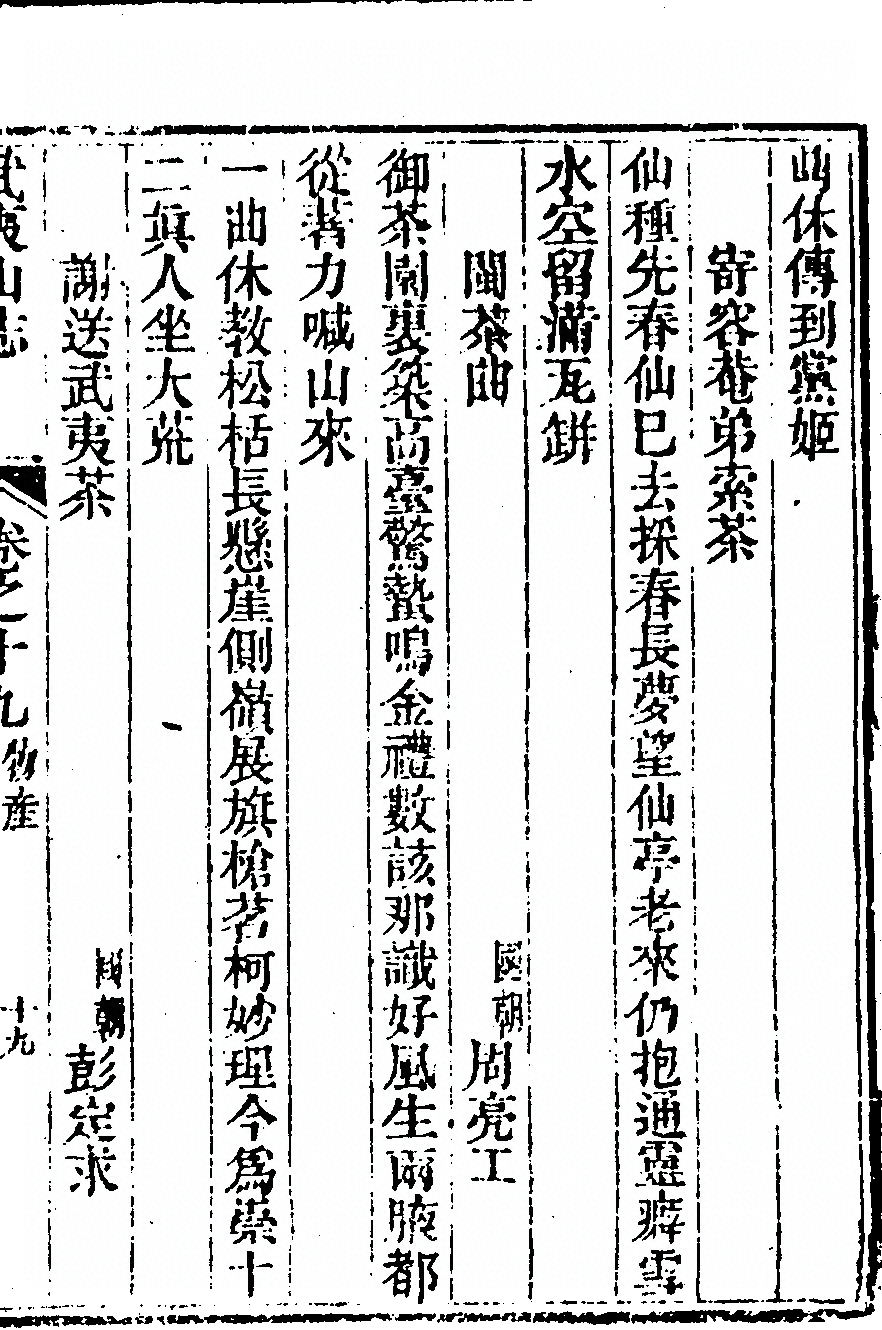 曲休傳到黨姬
寄容菴弟索茶
仙種先春仙巳去採春長夢望仙亭老來仍抱通靈癖雪
水空留滿瓦缾
閩茶曲
國朝周亮工
御茶園裏築高臺驚蟄鳴金禮數該那識好風生兩腋都
從著力喊山來
一曲休教松栝長懸崖側嶺展旗槍茗柯妙理今爲祟十
二真人坐大荒
謝送武夷茶
國朝彭定求
武夷山志
卷之十九物產
十九